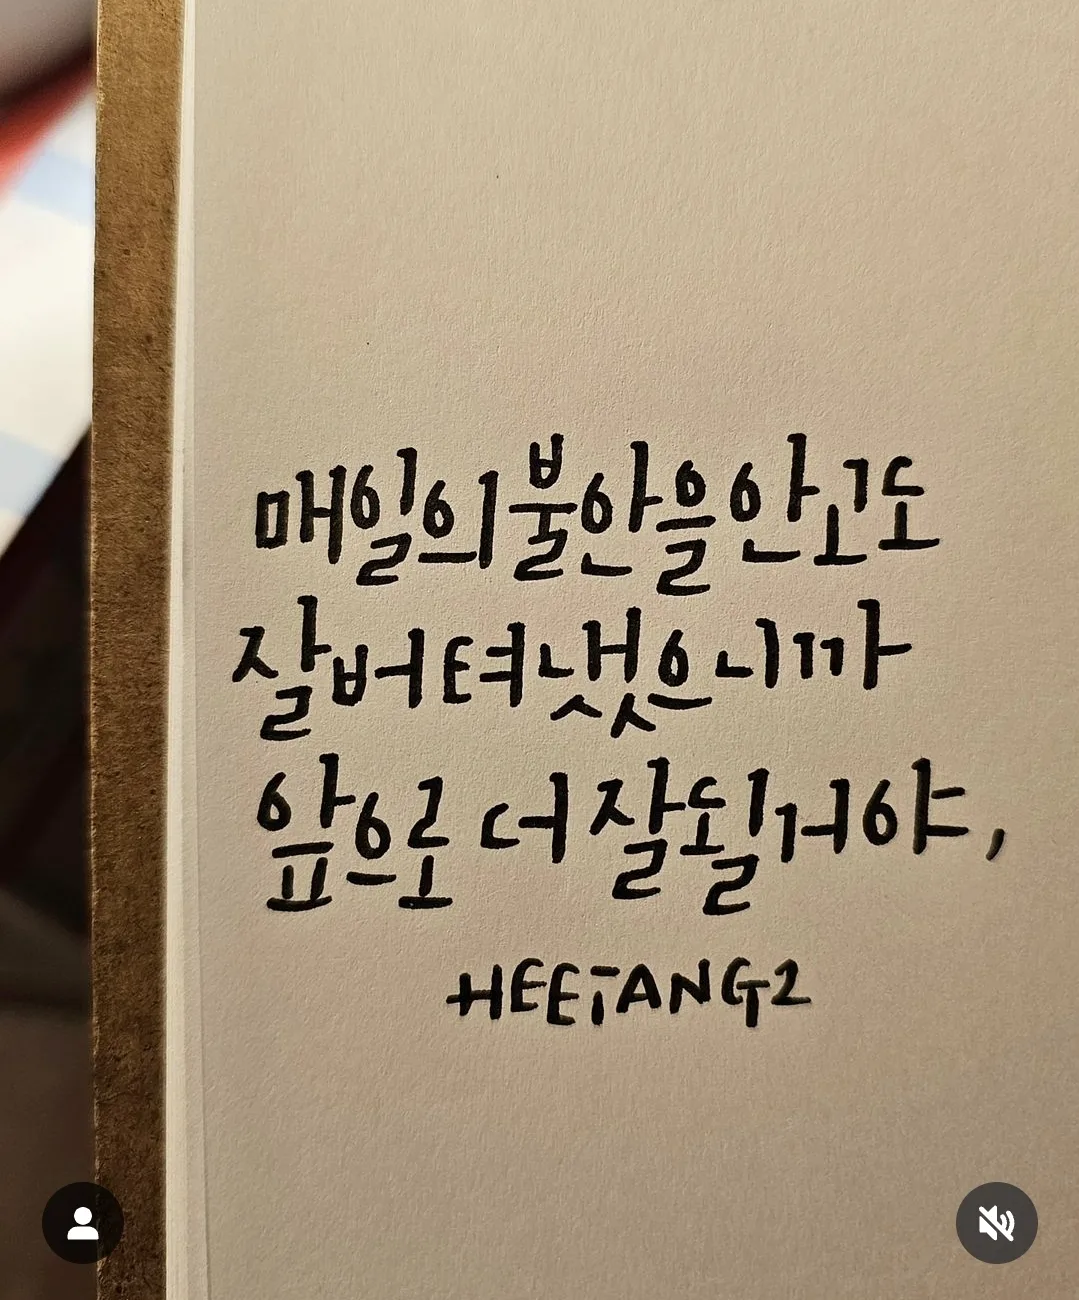 매일의 불안을 안고도
잘 버텨냈으니까
앞으로 더 잘 될 거야,
HEETANG2